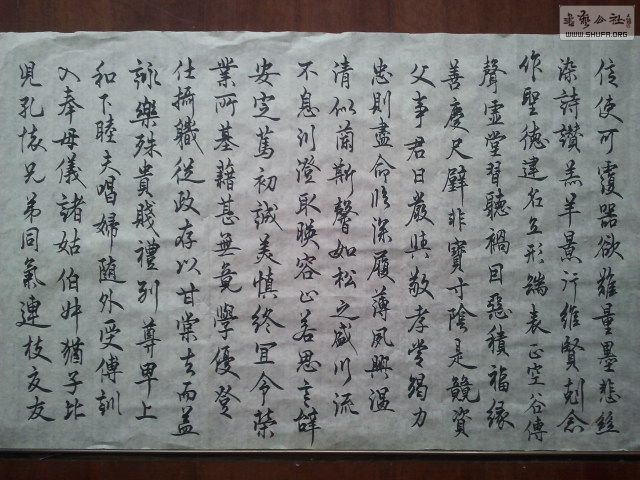 信使可覆器欲難量墨悲絲
染詩讚羔羊景行維賢剋念
作聖德建名立形端表正空谷傳
聲虛堂習聽禍因惡積福緣
善慶尺璧非寶寸陰是競資
父事君曰嚴與敬孝當竭力
忠則盡命臨深履薄夙興溫
清似蘭斯馨如松之盛川流
不息川澄取暎容止若思言辭
安定篤初誠美慎終宜令榮
業所基藉甚無竟學優登
仕攝職從政存以甘棠去而益
詠樂殊貴賤禮別尊卑上
和下睦夫唱婦隨外受傅訓
入奉母儀諸姑伯叔猶子比
兒孔懷兄弟同氣連枝交友
書藝公社
WWW.SHUFA.ORG